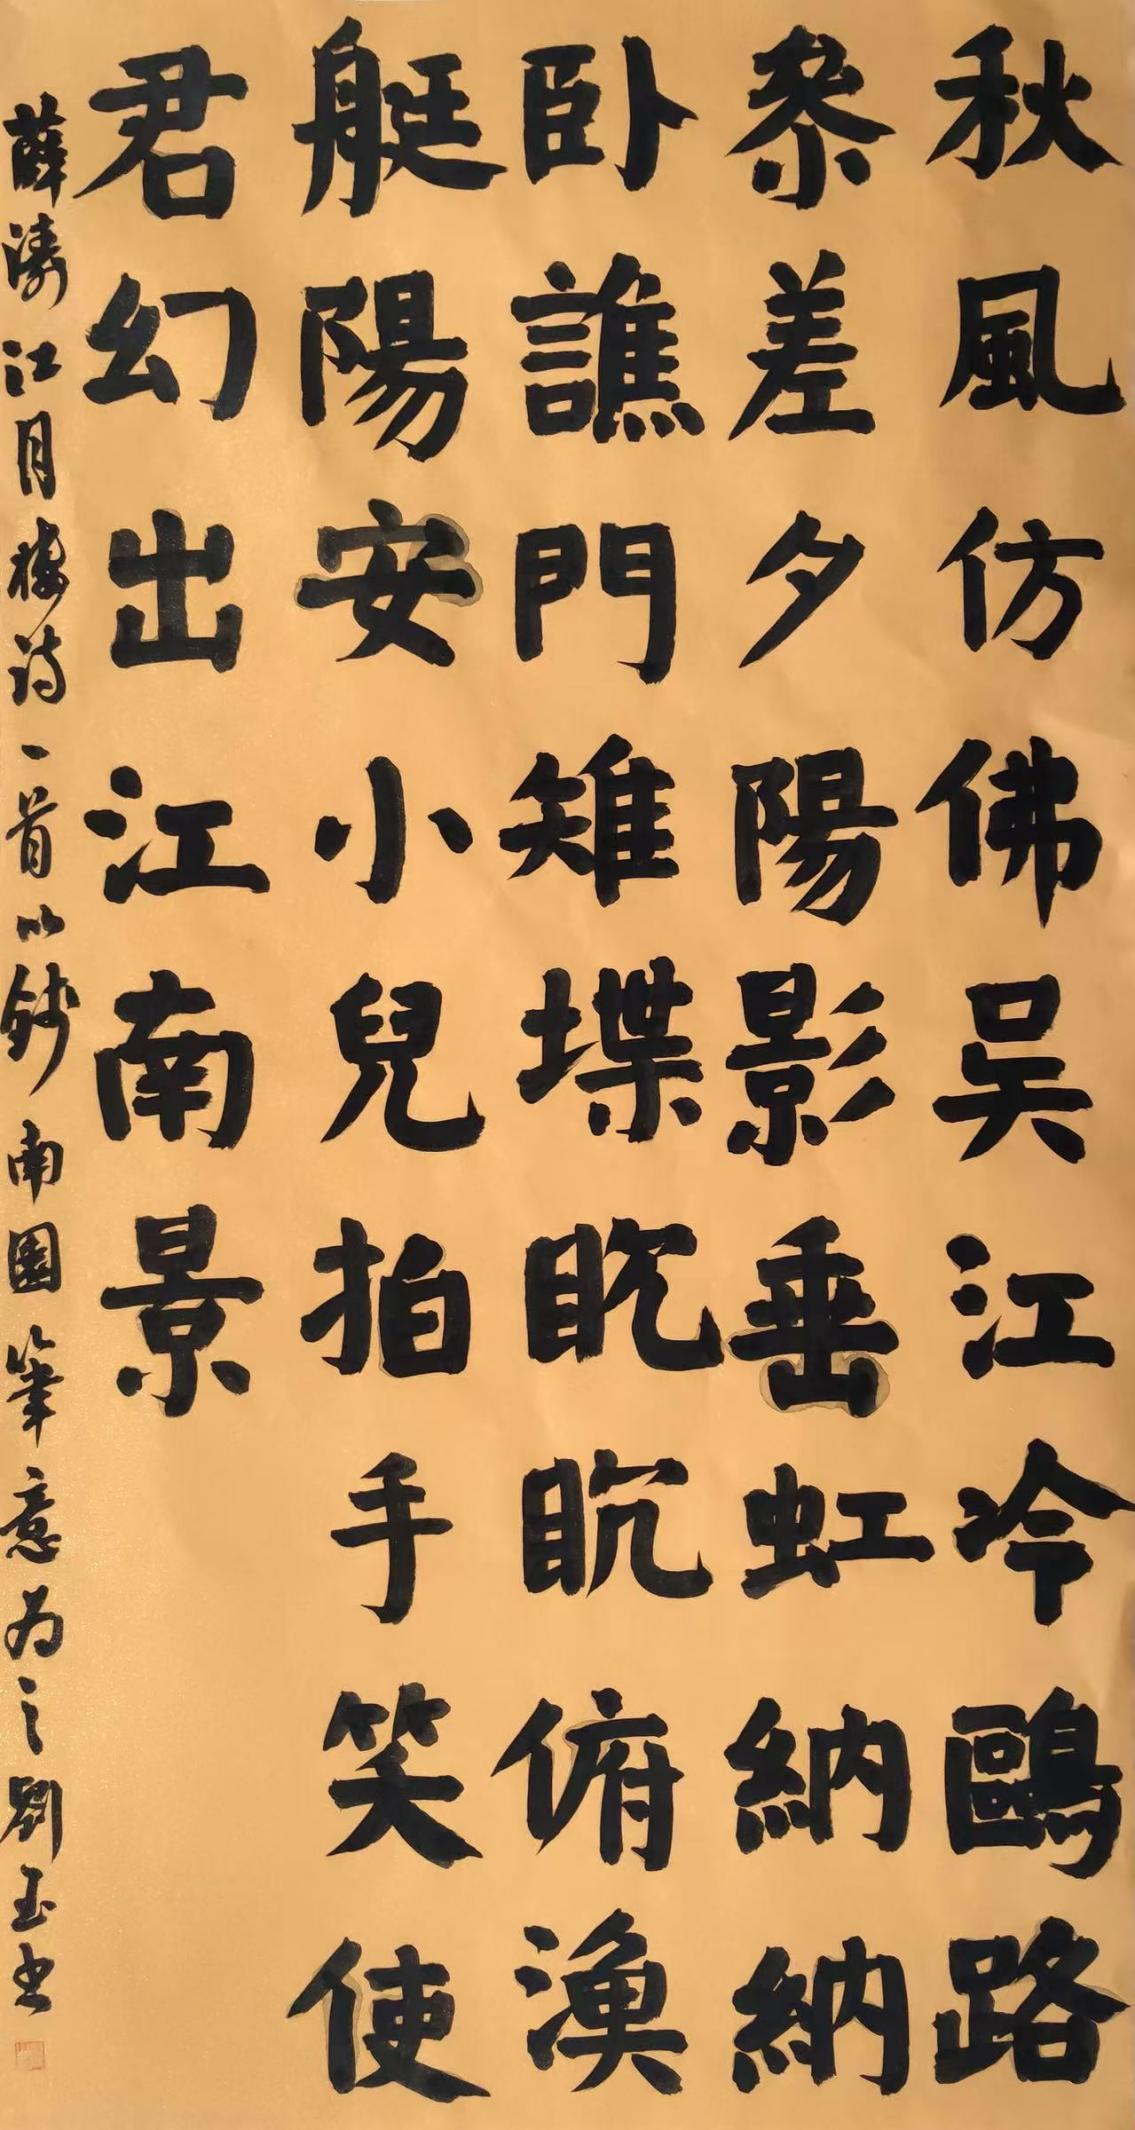 秋風仿佛吴江冷鷗路
叅差夕陽影垂虹納納
卧譙門雉堞眈眈俯漁
艇陽安小兒拍手笑使
君幻出江南景
薛濤江月樓詩一首以錢南園筆意為之劉玉书